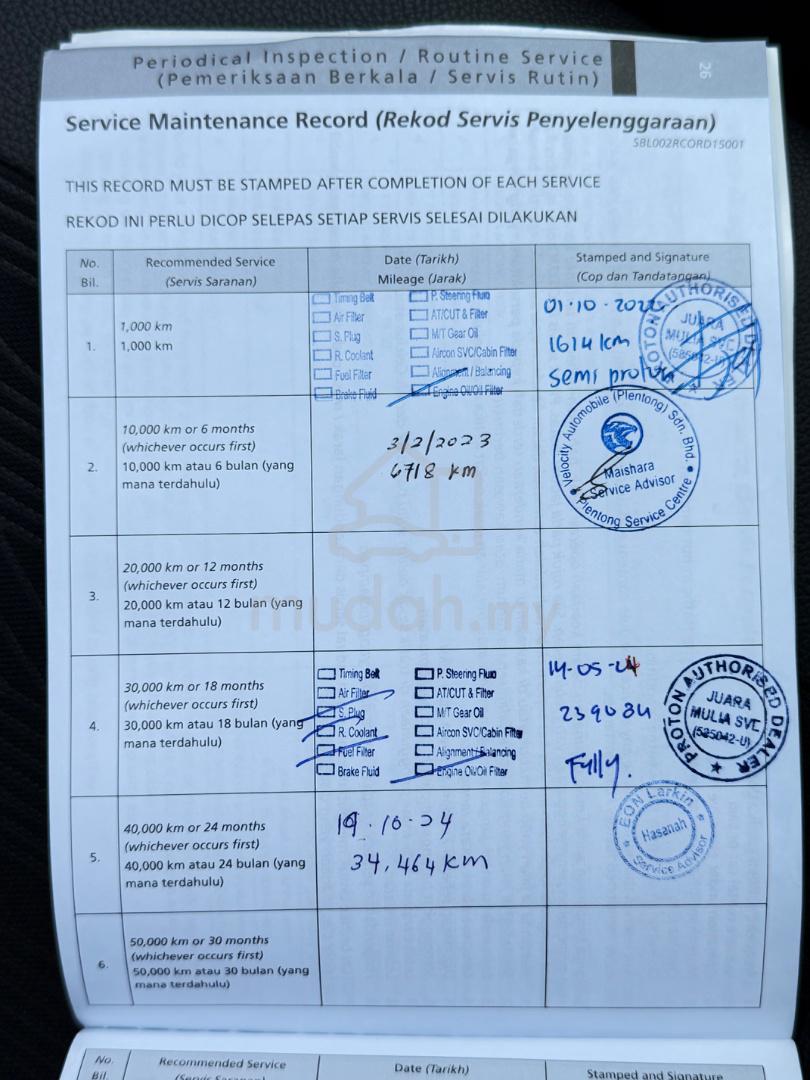 Periodical Inspection / Routine Service
(Pemeriksaan Berkala / Servis Rutin)
26
Service Maintenance Record (Rekod Servis Penyelenggaraan)
SBL002RCORD15001
THIS RECORD MUST BE STAMPED AFTER COMPLETION OF EACH SERVICE
REKOD INI PERLU DICOP SELEPAS SETIAP SERVIS SELESAI DILAKUKAN
No.
Bil.
Recommended Service
(Servis Saranan)
Date (Tarikh)
Mileage (Jarak)
Stamped and Signature
(Cop dan Tandatangan)
1.
1,000 km
1,000 km
Timing Belt
Air Filter
S. Plug
R. Coolant
Fuel Filter
Brake Fluid
P. Steering Fluid
AT/CUT & Filter
M/T Gear Oil
Aircon SVC/Cabin Filter
Alignment / Balancing
Engine Oil/Oil Filter
01.10.2022
1614 km
semi
PROTON AUTHORISED DEALER
JUARA
MULIA SVC
(585042-U)
2.
10,000 km or 6 months
(whichever occurs first)
10,000 km atau 6 bulan (yang
mana terdahulu)
3/2/2023
6718 km
Velocity Automobile (Plentong) Sdn. Bhd.
Maishara
Service Advisor
Plentong Service Centre
3.
20,000 km or 12 months
(whichever occurs first)
20,000 km atau 12 bulan (yang
mana terdahulu)
mudah.my
4.
30,000 km or 18 months
(whichever occurs first)
30,000 km atau 18 bulan (yang
mana terdahulu)
Timing Belt
Air Filter
S. Plug
R. Coolant
Fuel Filter
Brake Fluid
P. Steering Fluid
AT/CUT & Filter
M/T Gear Oil
Aircon SVC/Cabin Filter
Alignment/Balancing
Engine Oil/Oil Filter
14-05-24
Fylly.
PROTON AUTHORISED DEALER
JUARA
MULIA SVC
(585042-U)
5.
40,000 km or 24 months
(whichever occurs first)
40,000 km atau 24 bulan (yang
mana terdahulu)
19.10.24
34,464 KM
EON Larkin
Hasanah
Service Advisor
6.
50,000 km or 30 months
(whichever occurs first)
50,000 km atau 30 bulan (yang
mana terdahulu)
No.
Bil.
Recommended Service
(Servis Saranan)
Date (Tarikh)
Stamped and Signature